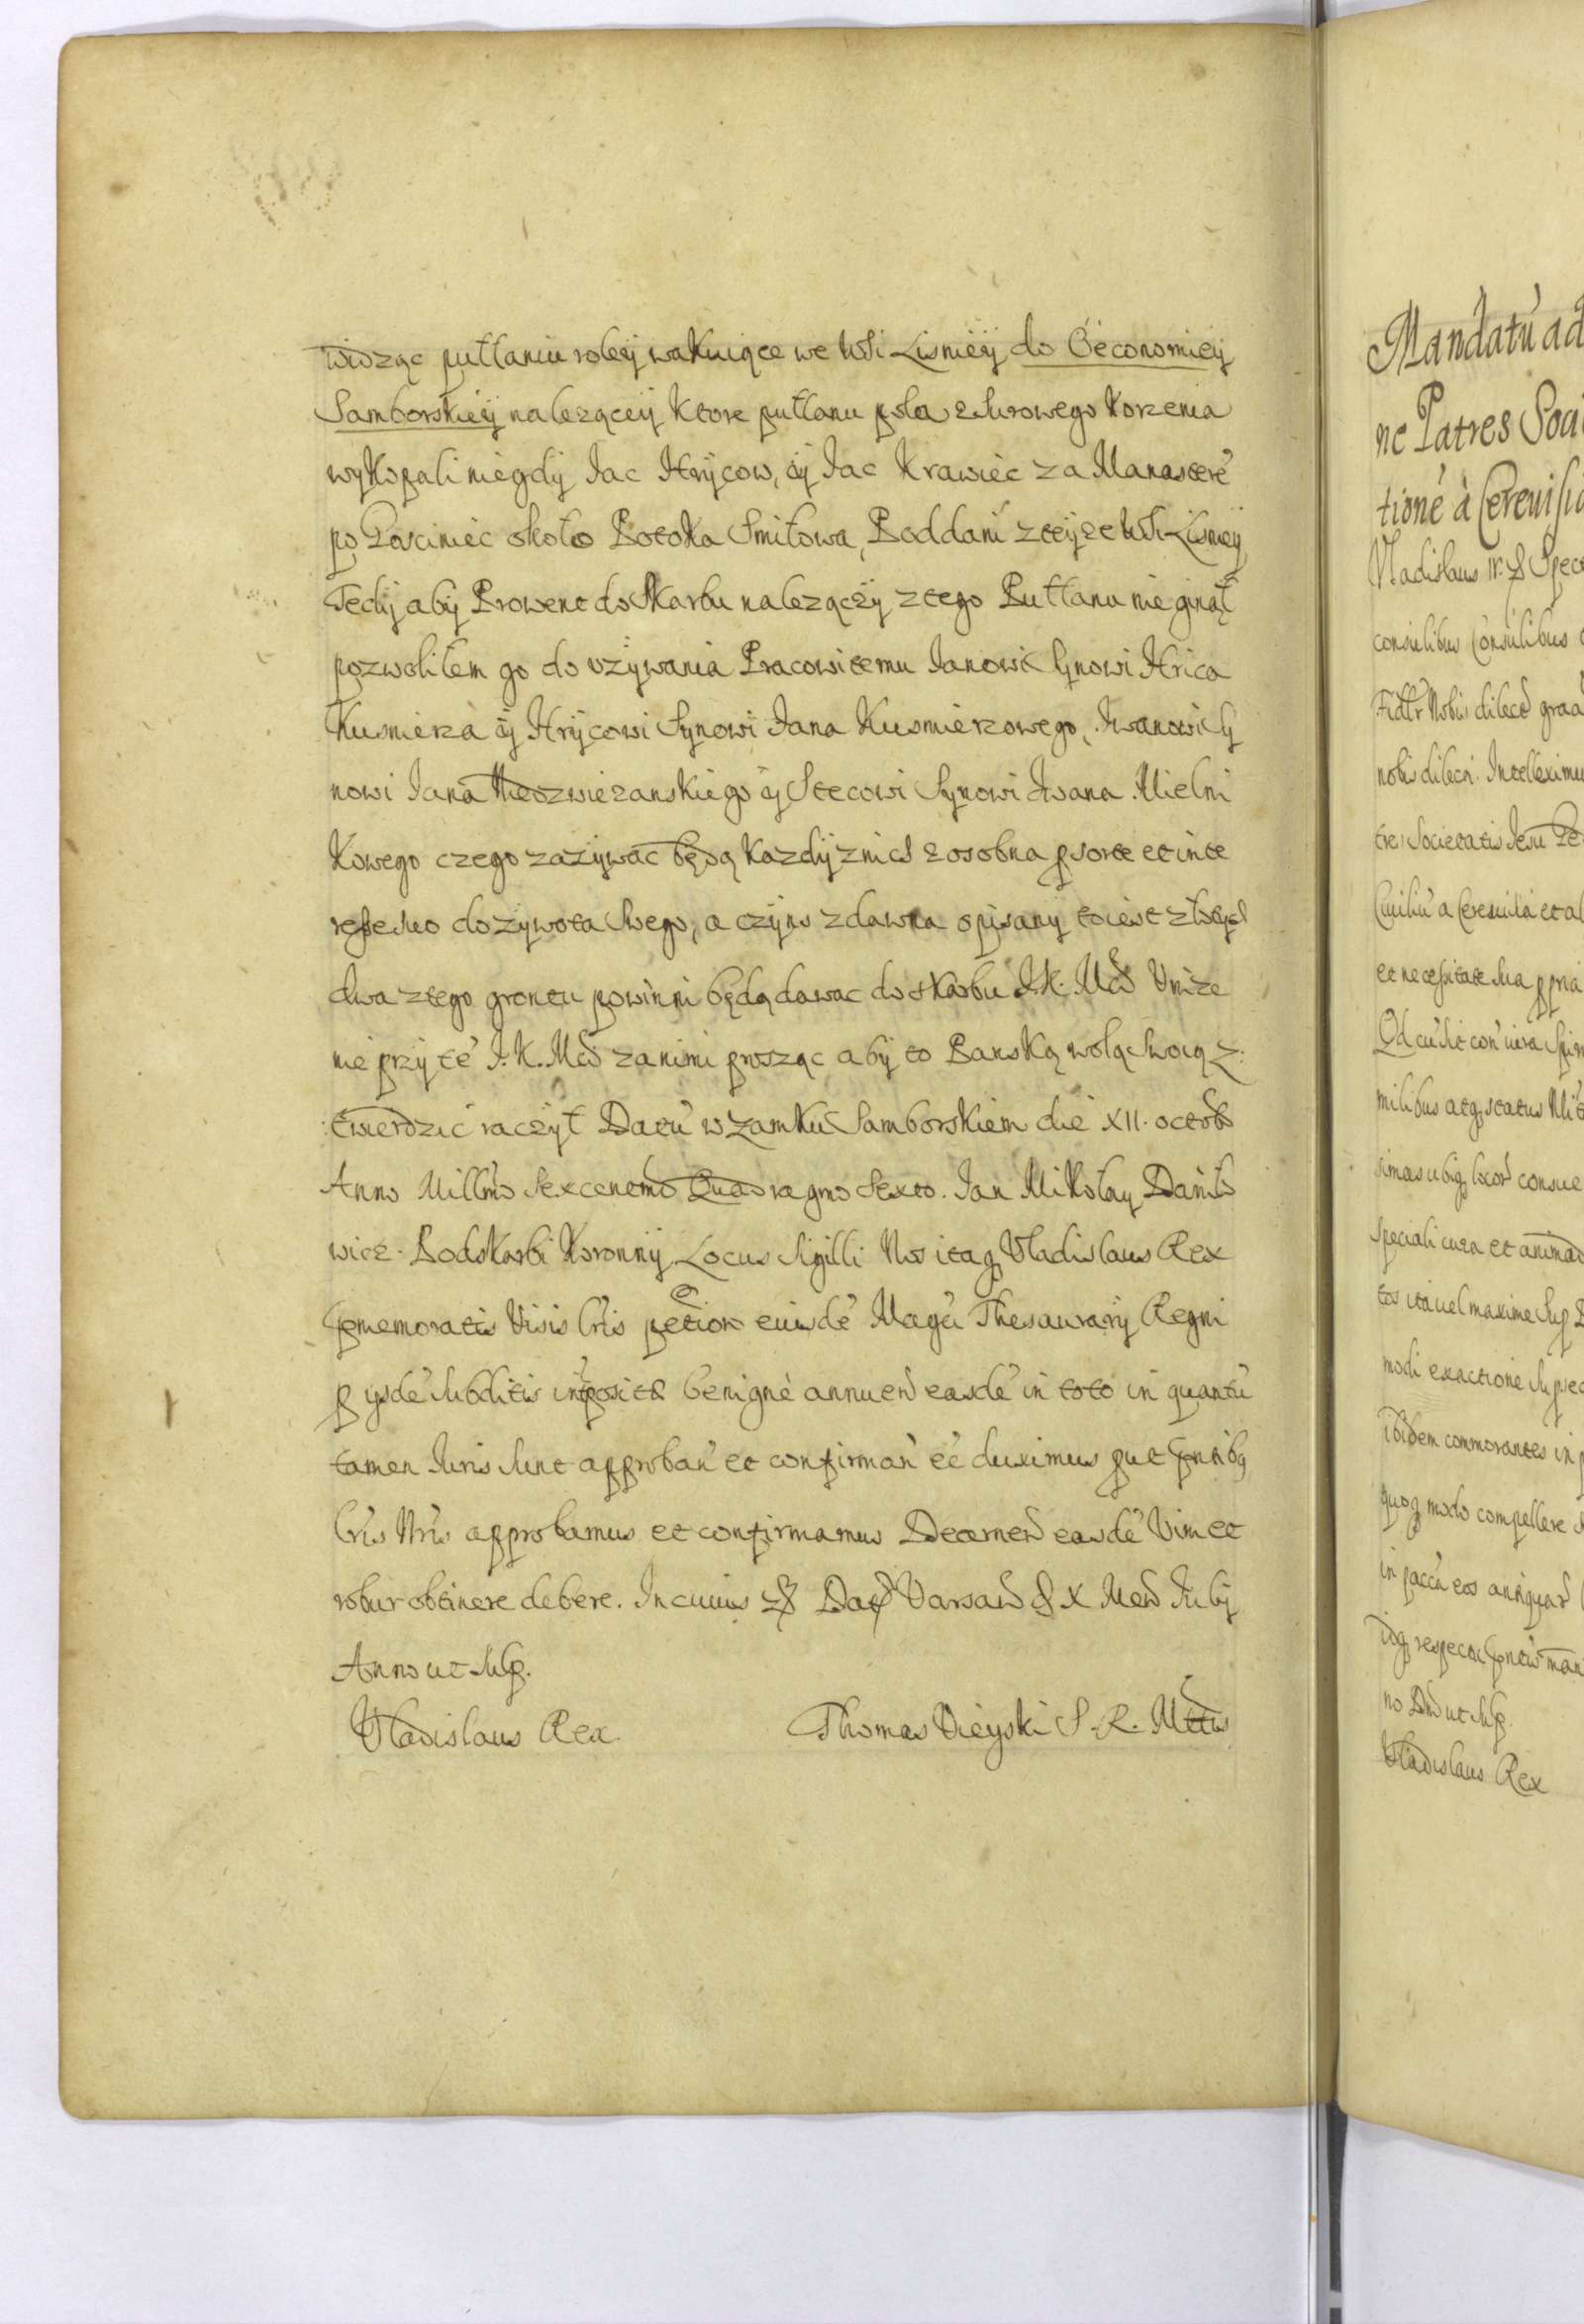 widząc pułłaniu roleÿ wakuiące we Wsi Lisnieÿ do Oéconomieÿ
Samborskieÿ naleząceÿ ktore pułłanu pola z surowego korzenia
wykopali niegdÿ Jac Hrÿcow, aÿ Jac Krawiéc za Manasteré
po Gosciniéc około Potoka Smiłowa, Poddani zteÿze Wsi Lisneÿ
Tedÿ abÿ Prowent do Skarbu nalezączÿ ztego Pułłanu nie ginął
pozwoliłem go do uzÿwania Pracowitemu Janowi Synowi Hrica
Kusnierza aÿ Hrÿcowi Synowi Jana Kusnierzowego, Iwanowi Sÿ
nowi Jana Niedzwiezanskiego aÿ Stecowi Synowi Iwana Mielni
kowego czego zazÿwac będą kazdÿ znich zosobna p sorte et inte
resse suo do zÿwota swego, a czÿns zdawna opisany to iest złotÿch
dwa ztego grontu powinni będą dawac do skarbu J.K. Mci Unize
nie przyté J.K. Mci zanimi prosząc abÿ to Panską wolą swoią z:
:twierdzic raczÿł Datū w zamku Samborskiem die XII. octobr
Anno Millmo Sexcenmo Quadragmo Sexto. Jan Mikołaÿ Daniło
wicz Podskarbi Koronnÿ Locus Sigilli Nos itaq Vladislaus Rex
comemoratis Visis lris petion euisdé Magci Thesaurarÿ Regni
p ÿsdé subditis interposita benigné annuen easdé in toto in quantū
tamen Juris sunt approban et confirman eé duximus put pntibq
lris Nris approbamus et confirmamus Decernen easdé Vim et
robur obtinere debere. In cuius Dat Varsav d X Men Julÿ
Anno ut sup.
Vladislaus Rex Thomas Vieÿski S. R. Mttis
Mandatū ad
ne Patres Soci
tioné à Cereuisi
Vladislaus IV. Spect
consulibus Consulibus
Fidlr Nobis dilect
nobis dilecti. Intelleximu
tres Societatis Jesu
Ciuiliū a Cereuisia et al
et necessitate sua ppria
Qd cū sit con iura
milibus atq status
speciali cura et animad
tos ita uel maxime sup
modi exactione
ibidem commorantes in p
quoq modo compellere
in pacta eos antiquar
idq respectu
no Dni ut sup.
Vladislaus Rex